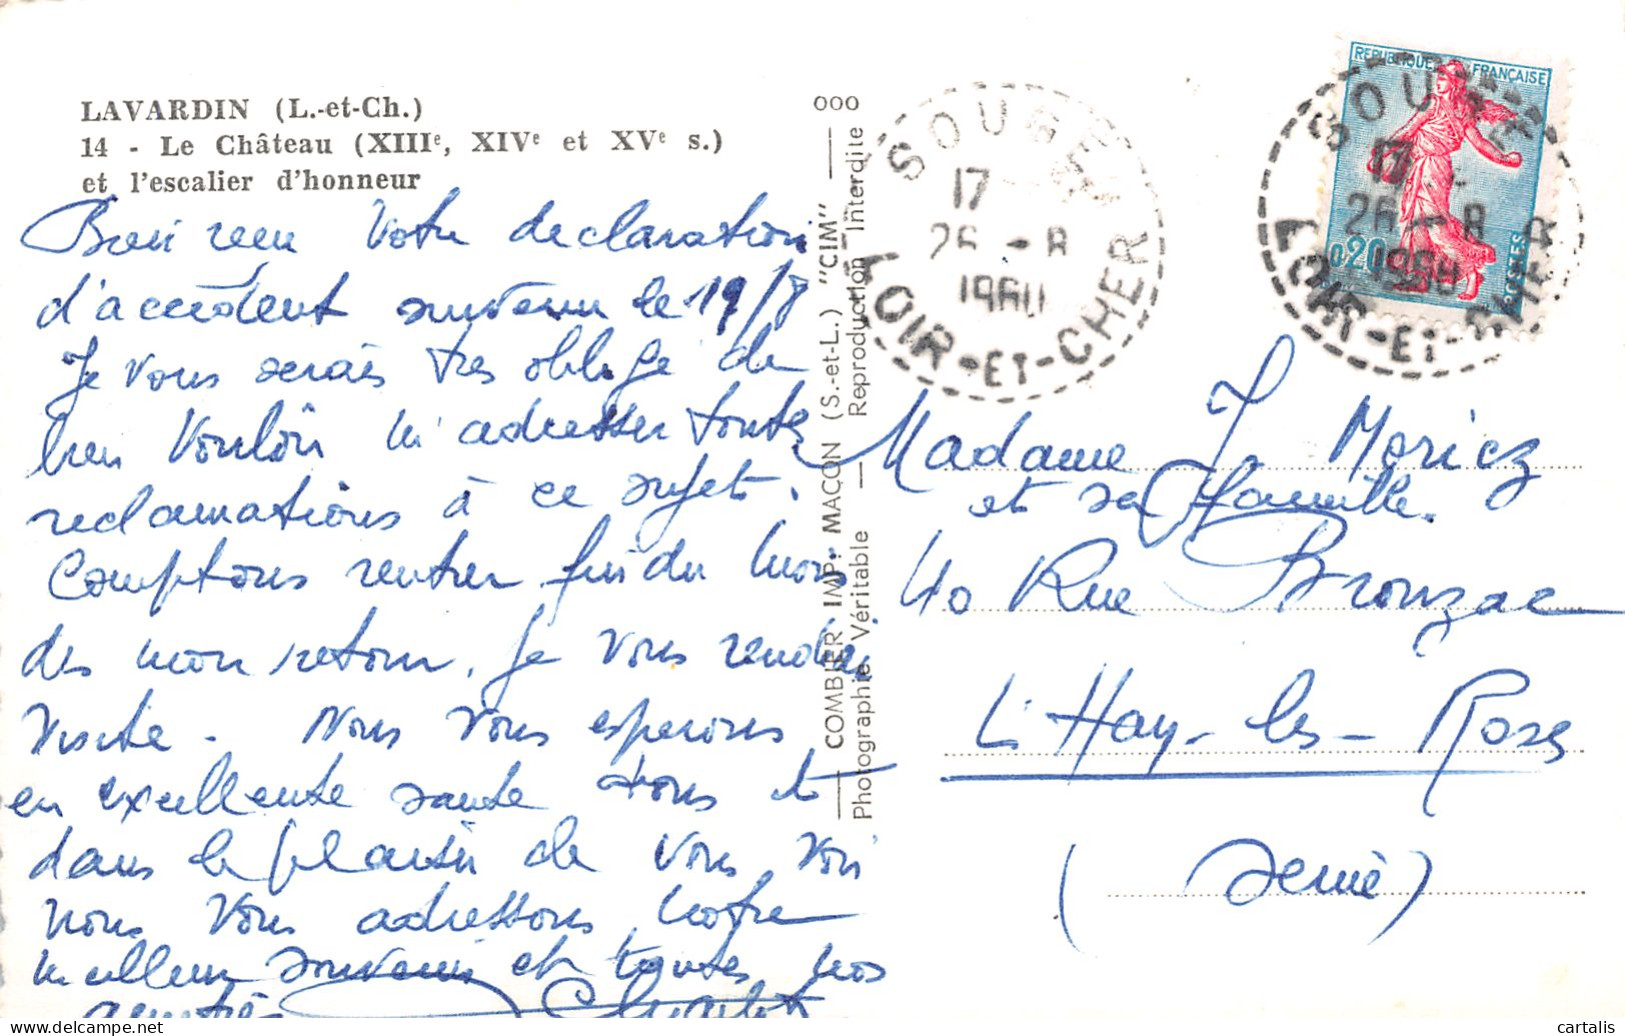 LAVARDIN (L.-et-Ch.)
14 - Le Château (XIIIe, XIVe et XVe s.)
et l'escalier d'honneur
Bien reçu Votre declaration
d'accident survenu le 19/8
Je vous serais très obligé de
bien Vouloir m'adresser toutes
reclamations à ce sujet.
Comptons rentrer fin du mois
des mon retour, je vous rendrai
visite. Nous vous esperons
en excellente santé tous et
dans le plaisir de vous voir
nous vous adressons notre
meilleur souvenir et toutes nos
amitiés
COMBIER IMP. MACON (S.-et-L.) "CIM"
Photographie Véritable — Reproduction Interdite
OOO
SOUGE
17
26 - 8
1960
LOIR-ET-CHER
REPUBLIQUE FRANÇAISE
0,20
POSTES
SOUGE
17
26 - 8
1960
LOIR-ET-CHER
Madame J Moricz
et sa famille.
40 Rue Bronzac
L'Hay-les-Roses
(Seine)
cartalis